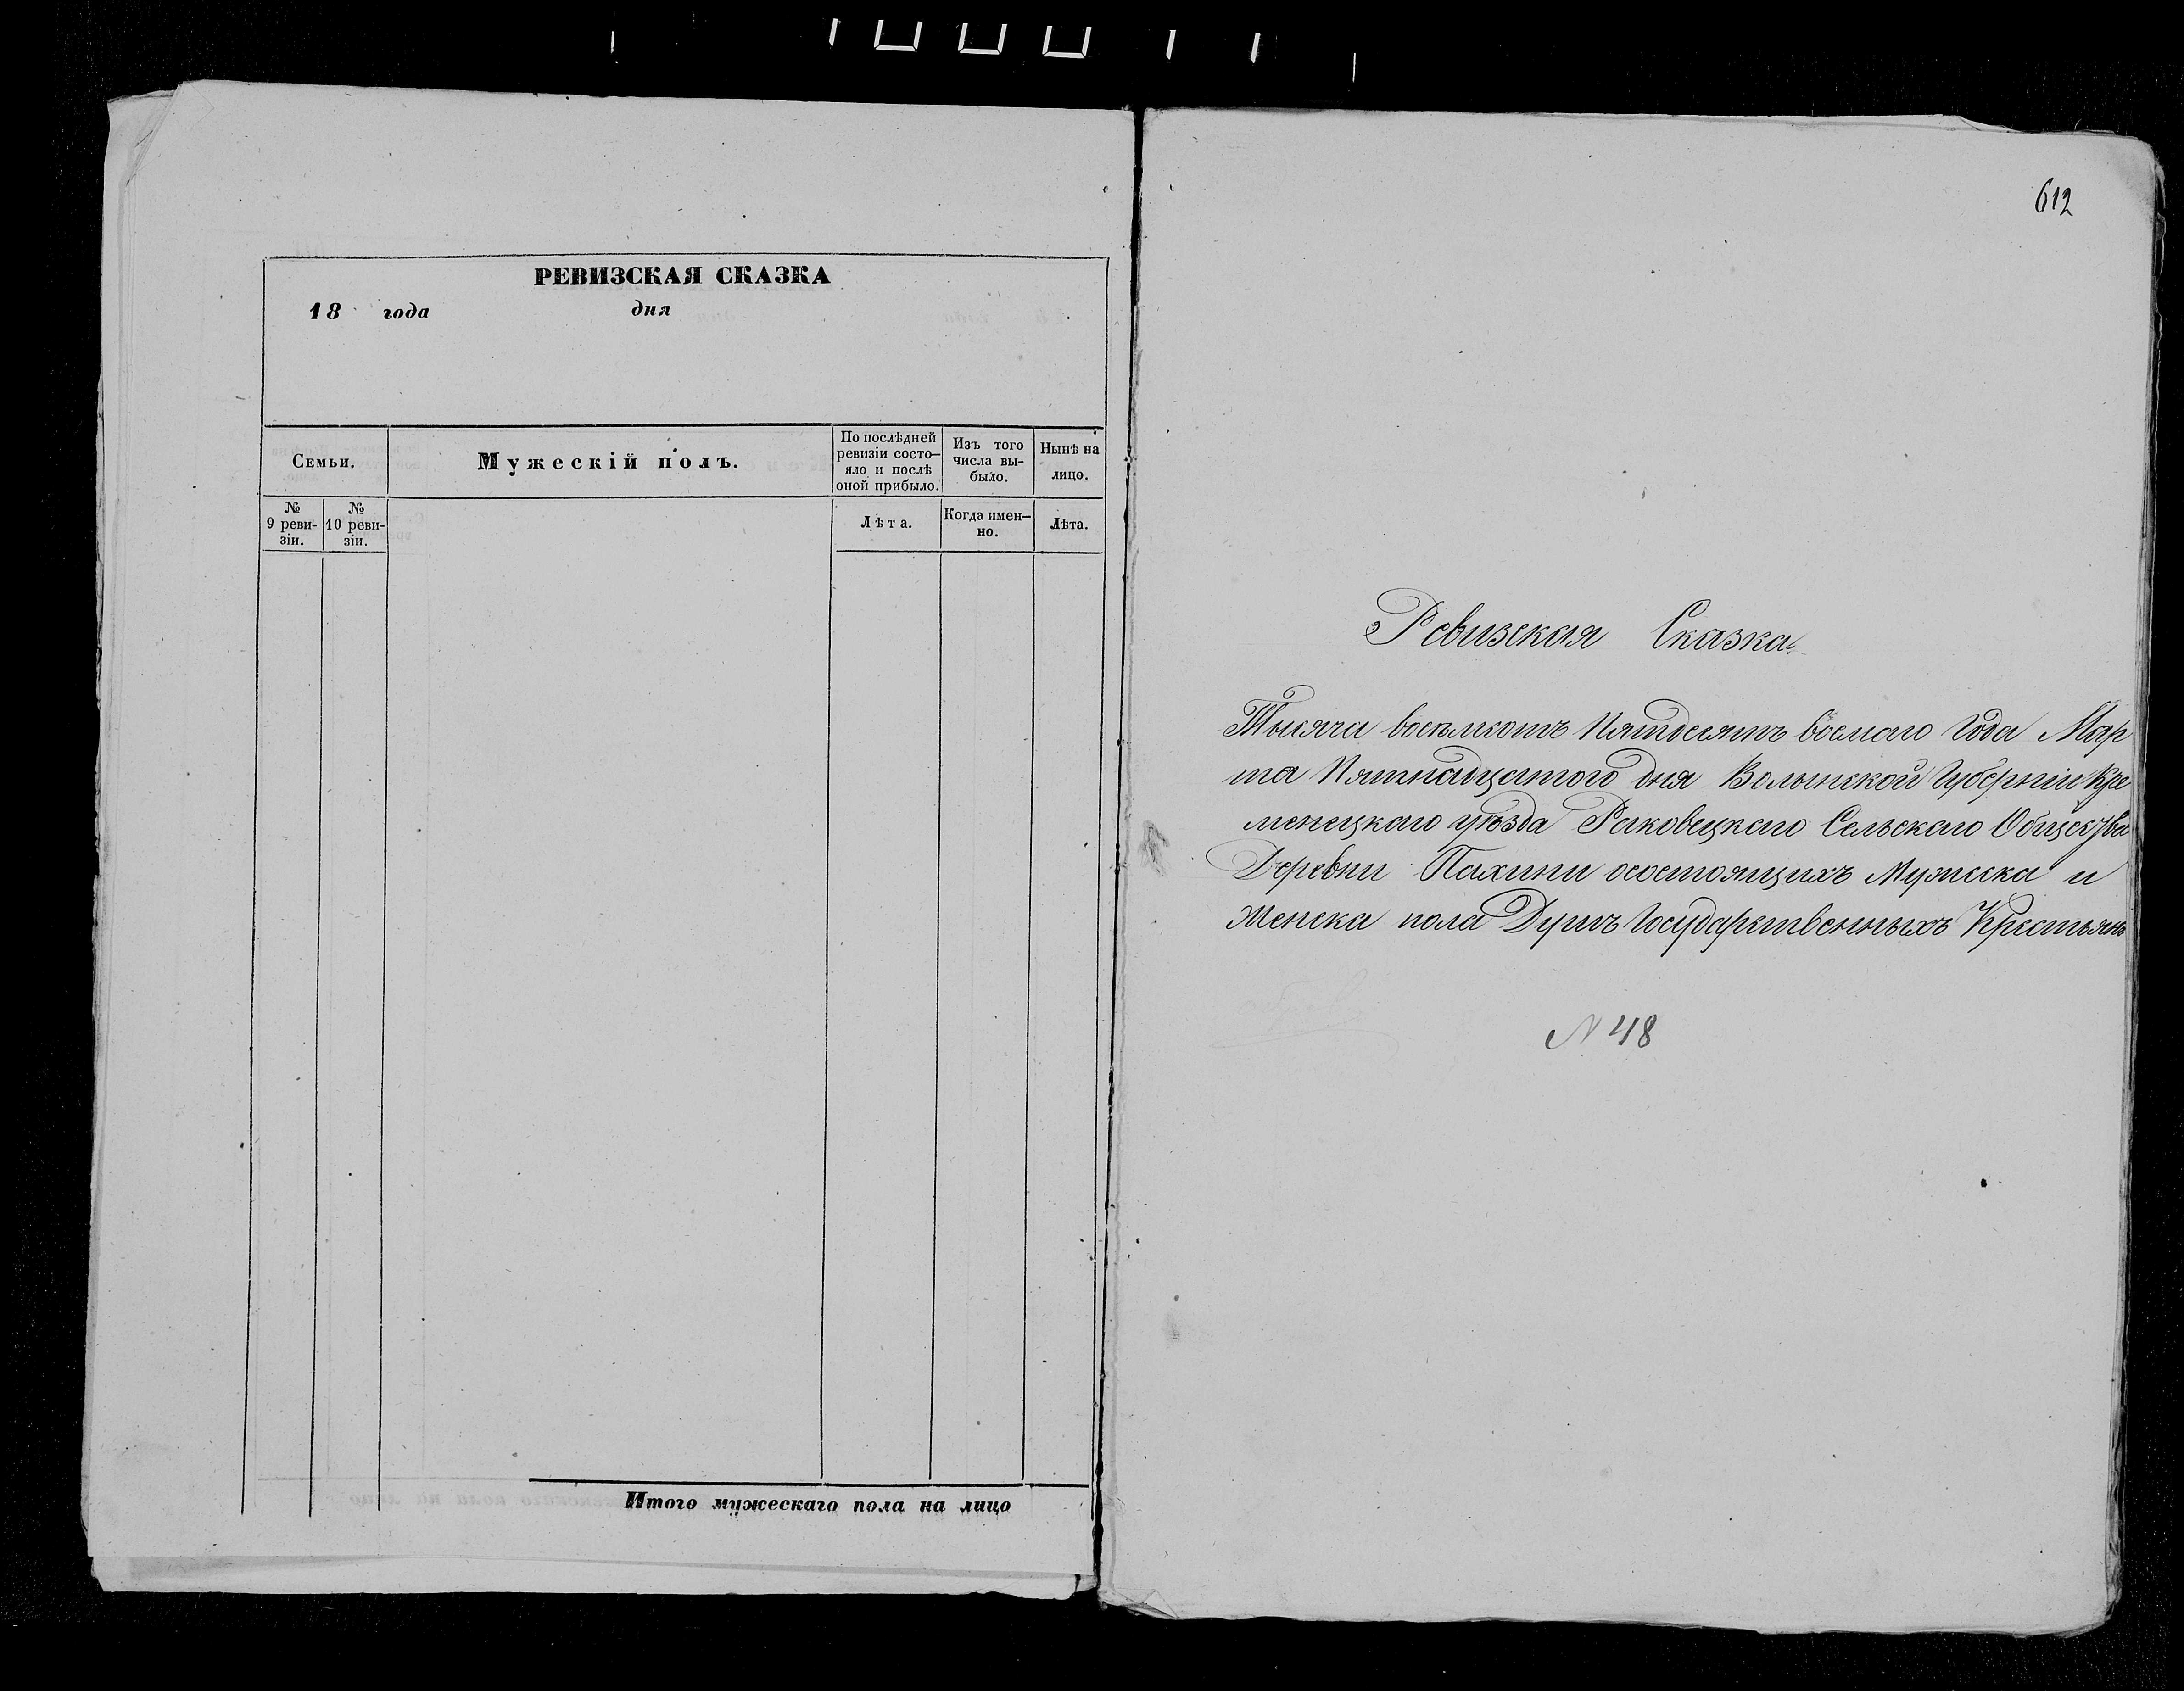 РЕВИЗСКАЯ СКАЗКА
18 года дня
Семьи.
Мужескій полъ.
По послѣдней ревизіи состо—
яло и послѣ
оной прибыло.
Изъ того
числа вы-
было.
Нынѣ на
лицо.
№
9 реви-
зіи.
№
10 реви-
зіи.
Лѣта.
Когда имен—
но.
Лѣта.
Итого мужескаго пола на лицо
612
Ревизская Сказка
Тысяча восемсотъ Пятдесятъ восмаго Года Мар
та Пятнадцатого дня Волынской Губерніи Кре
менецкаго уѣзда Раковецкаго Сельскаго Общества
Деревни Пахини осостоящихъ Мужеска и
Женска пола Душъ Государственныхъ Крестьянъ
N 48